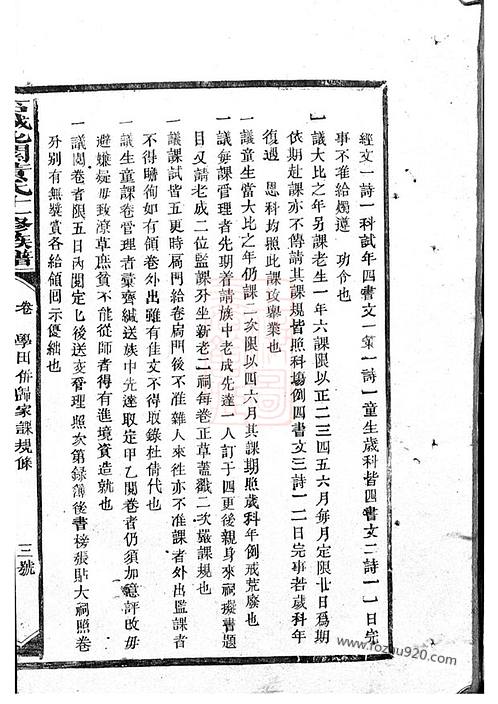 經文一詩一科試年四書文一策一詩一童生歲科皆四書文二詩一一日完
事不准給燭遵　功令也
一議大比之年另課老生一年六課限以正二三四五六月每月定限廿日爲期
依期赴課亦不傳請其課規皆照科場例四書文三詩一一日完事若歲科年
復遇　恩科均照此課攻舉業也
一議童生當大比之年仍課二次限以四六月其課期照歲科年例戒荒廢也
一議每課管理者先期着請族中老成先達一人訂于四更後親身來祠擬書題
目又請老成二位監課分坐新老二祠每卷正草蓋戳二次嚴課規也
一議課試皆五更時扃門給卷扃門後不准雜人來往亦不准課者外出監課者
不得瞻徇如有領卷外出雖有佳文不得取錄杜倩代也
一議生童課卷管理者彙齊緘送族中先達取定甲乙閱卷者仍須加意評改毋
避嫌疑毋致潦草庶貧不能從師者得有進境資造就也
一議閱卷者限五日內閱定匕後送交看理照次第録簿後書榜張貼大祠照卷
分别有無獎賞各給領囬示優絀也
卷　學田併歸家課規條
三號
www.fozhu920.com